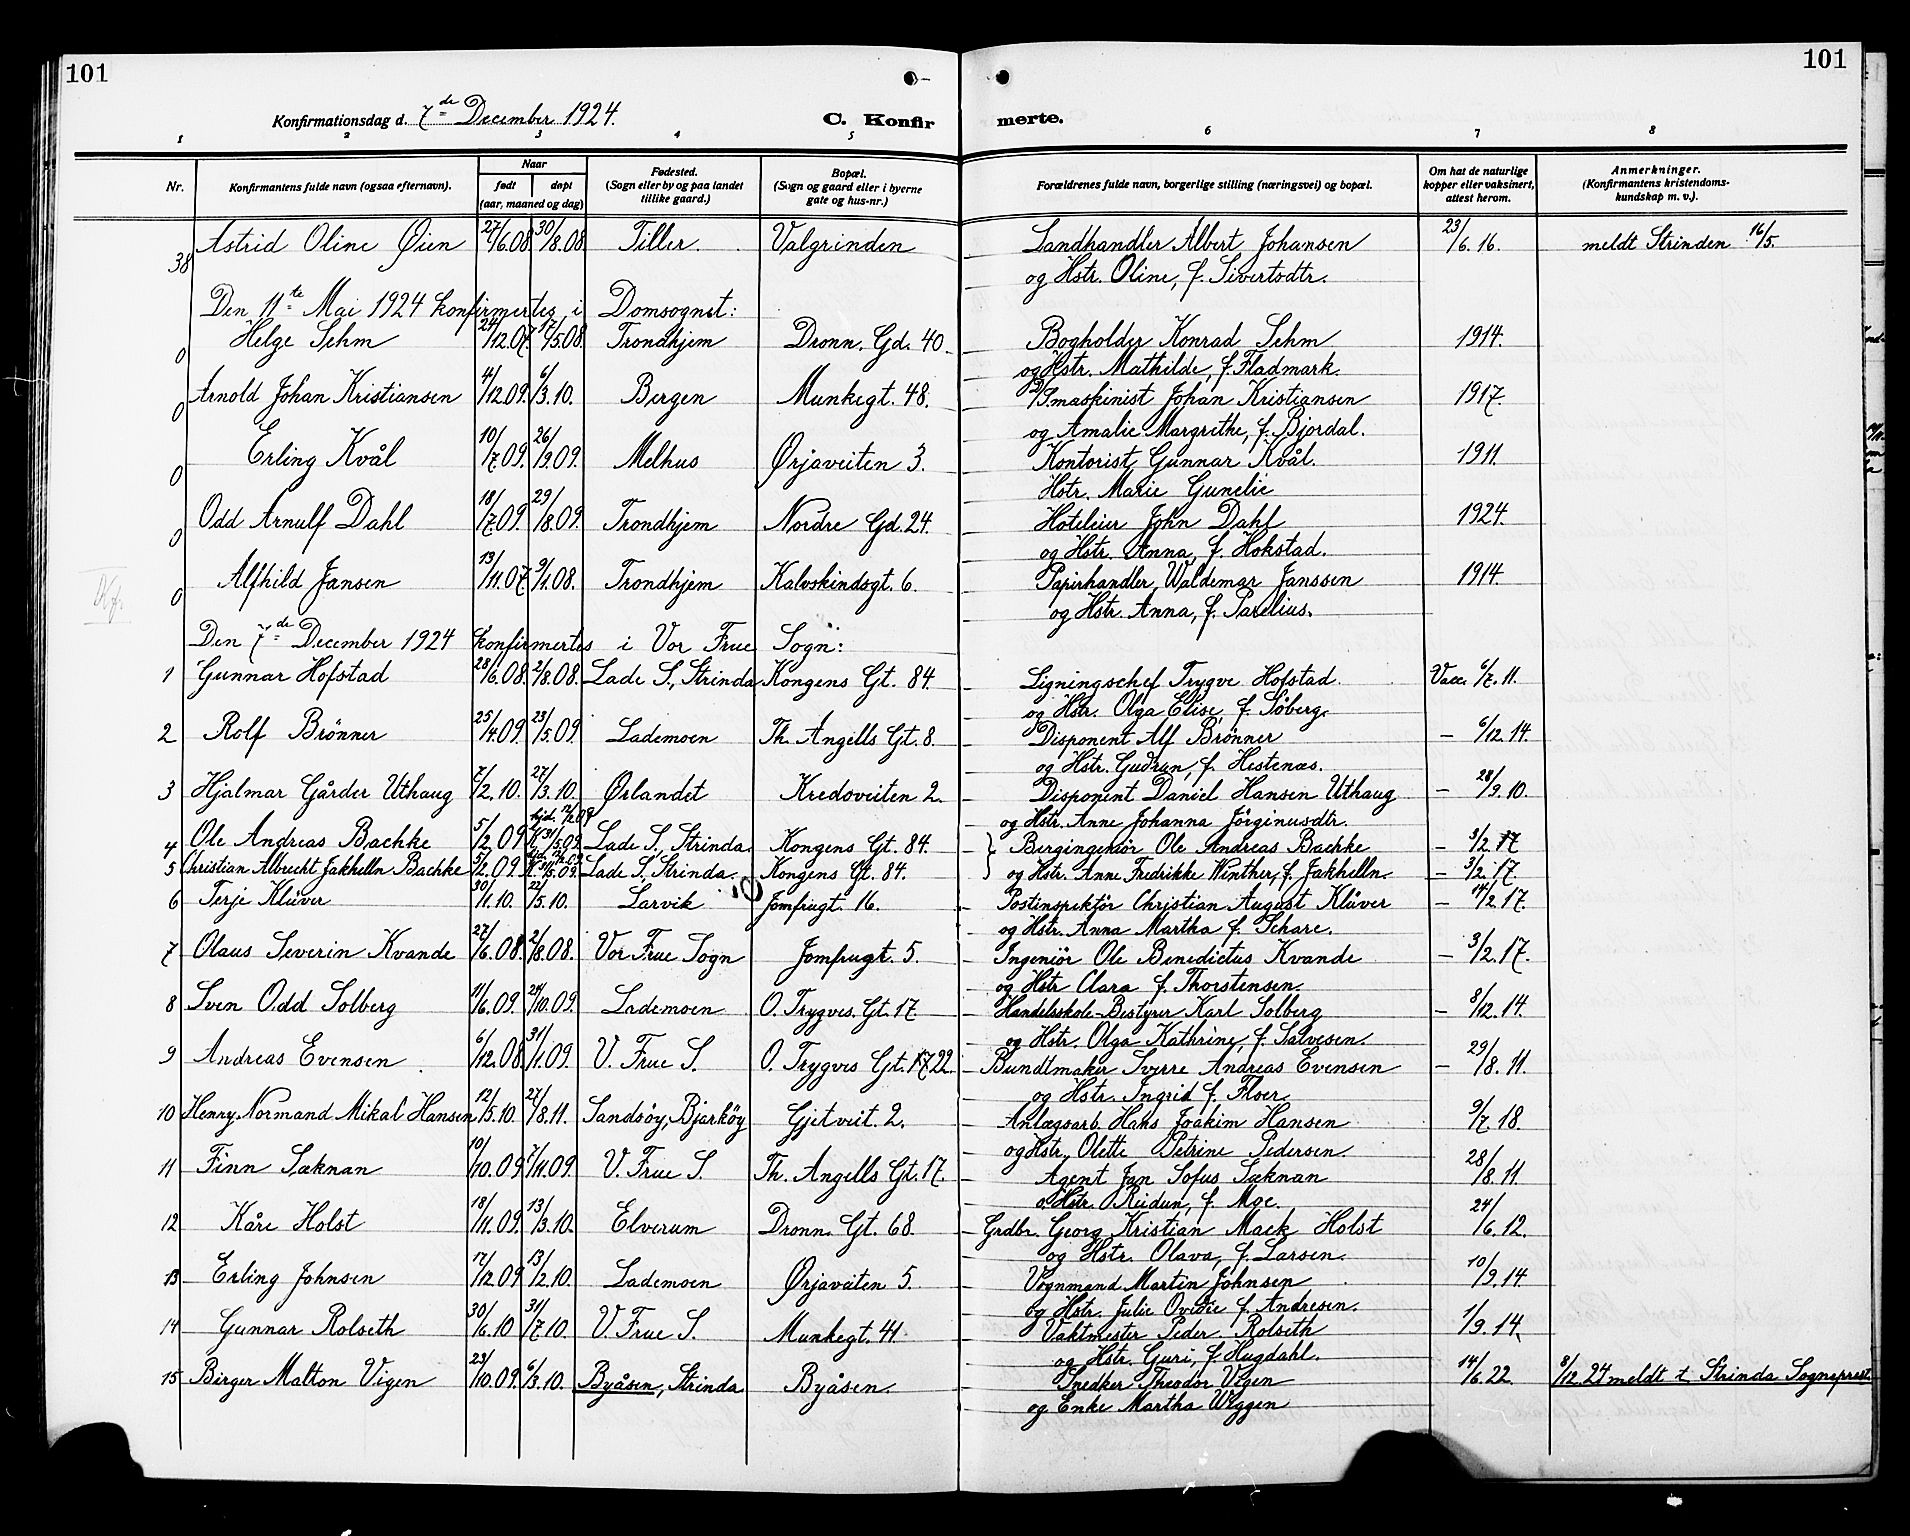 101
101
Konfirmationsdag d. 7de December 1924.
C. Konfirmerte.
1 2 3 4 5 6 7 8
Nr.
Konfirmantens fulde navn (ogsaa efternavn).
Naar
født
døpt
(aar, maaned og dag)
Fødested.
(Sogn eller by og paa landet
tillike gaard.)
Bopæl.
(Sogn og gaard eller i byerne
gate og hus-nr.)
Forældrenes fulde navn, borgerlige stilling (næringsvei) og bopæl.
Om hat de naturlige
kopper eller vaksinert,
attest herom.
Anmerkninger.
(Konfirmantens kristendoms-
kundskap m. v.).
38 Astrid Oline Øien 27/6.08. 30/8.08. Tiller. Valgrinden Landhandler Albert Johansen 23/6.16. meldt Strinden 16/5.
og Hstr. Oline, f. Sivertsdtr.
Den 11te Mai 1924 konfirmertes i Domsognet:
0 Helge Sehm 24/12.07. 17/5.08. Trondhjem Dronn. Gd. 40. Bogholder Konrad Sehm 1914.
og Hstr. Mathilde, f. Fladmark.
0 Arnold Johan Kristiansen 4/12.09. 6/3.10. Bergen Munkegt. 48. maskinist Johan Kristiansen 1917.
og Amalie Margrethe, f. Bjordal.
0 Erling Kvål 10/7.09. 26/9.09. Melhus Ørjaveiten 3. Kontorist Gunnar Kvål. 1911.
Hstr. Marie Gunelie
0 Odd Arnulf Dahl 18/7.09. 29/8.09. Trondhjem Nordre Gd. 24. Hoteleier John Dahl 1924.
og Hstr. Anna, f. Hokstad.
0 Alfhild Jansen 13/11.07. 9/1.08. Trondhjem Kalvskindsgt. 6. Papirhandler Waldemar Janssen 1914.
og Hstr. Anna, f. Parelius.
Den 7de December 1924 konfirmertes i Vor Frue Sogn:
1 Gunnar Hofstad 28/6.08. 2/8.08. Lade S., Strinda Kongens Gt. 84. Ligningschef Trygve Hofstad. Vacc. 6/7.11.
og Hstr. Olga Elise, f. Söberg.
2 Rolf Brönner 25/4.09. 23/5.09. Lademoen Th. Angells Gt. 8. Disponent Alf Brönner — 6/12.14.
og Hstr. Gudrun, f. Hestenæs.
3 Hjalmar Gårder Uthaug 7/2.10. 27/3.10. Ørlandet Kredoveiten 2. Disponent Daniel Hansen Uthaug — 28/9.10.
og Hstr. Anne Johanna Jörginusdtr.
4 Ole Andreas Bachke 5/2.09. 31/5.09. Lade S., Strinda. Kongens Gt. 84. Bergingeniör Ole Andreas Bachke — 3/2.17
5 Christian Albrecht Jakhelln Bachke 5/2.09. 31/5.09. Lade S., Strinda. Kongens Gt. 84. og Hstr. Anne Fredrikke Winther, f. Jakhelln. — 3/2.17.
6 Terje Klüver 30/1.10. 22/5.10. Larvik Jomfrugt. 16. Postinspektör Christian August Klüver — 14/2.17.
og Hstr. Anna Martha f. Schare.
7 Olaus Severin Kvande 27/6.08. 2/8.08. Vor Frue Sogn Jomfrugt. 5. Ingeniör Ole Benedictus Kvande — 3/2.17.
og Hstr Clara f. Thorstensen.
8 Sven Odd Solberg 11/6.09. 24/10.09. Lademoen O. Trygves. Gt. 17. Handelsskole-Bestyrer Karl Solberg — 8/12.14.
og Hstr. Olga Kathrine, f. Salvesen.
9 Andreas Evensen 6/12.08. 31/1.09. V. Frue S. O. Trygves Gt. 22. Bundtmaker Sverre Andreas Evensen — 29/8.11.
og Hstr. Ingrid f. Floer.
10 Henry Normand Mikal Hansen 12/5.10. 27/8.11. Sandsöy, Bjarköy Gjetveit. 2. Anlægsarb. Hans Joakim Hansen 9/7.18.
og Hstr. Olette Petrine Pedersen.
11 Finn Saknan 10/10.09. 7/11.09. V. Frue S. Th. Angells Gt. 17. Agent Jan Sofus Saknan 28/8.11.
o. Hstr. Reidun, f. Moe.
12 Kåre Holst 18/11.09. 13/3.10. Elverum Dronn. Gt. 68. Grdbr. Georg Kristian Mack Holst 24/6.12.
og Hstr. Olava, f. Larsen.
13 Erling Johnsen 17/12.09. 13/2.10. Lademoen Ørjaveiten 5. Vognmand Martin Johnsen 10/9.14.
og Hstr. Julie Ovidie f. Andresen.
14 Gunnar Rolseth 30/6.10 31/7.10. V. Frue S. Munkegt. 41. Vaktmester Peder Rolseth 1/9.14.
og Hstr. Guri, f. Hugdahl.
15 Birger Malton Vigen 23/10.09. 6/3.10. Byåsen, Strinda Byåsen. Snedker Theodor Vigen 14/6.22. 8/12.24 meldt t. Strinda Sogneprest.
og Enke Martha Wiggen